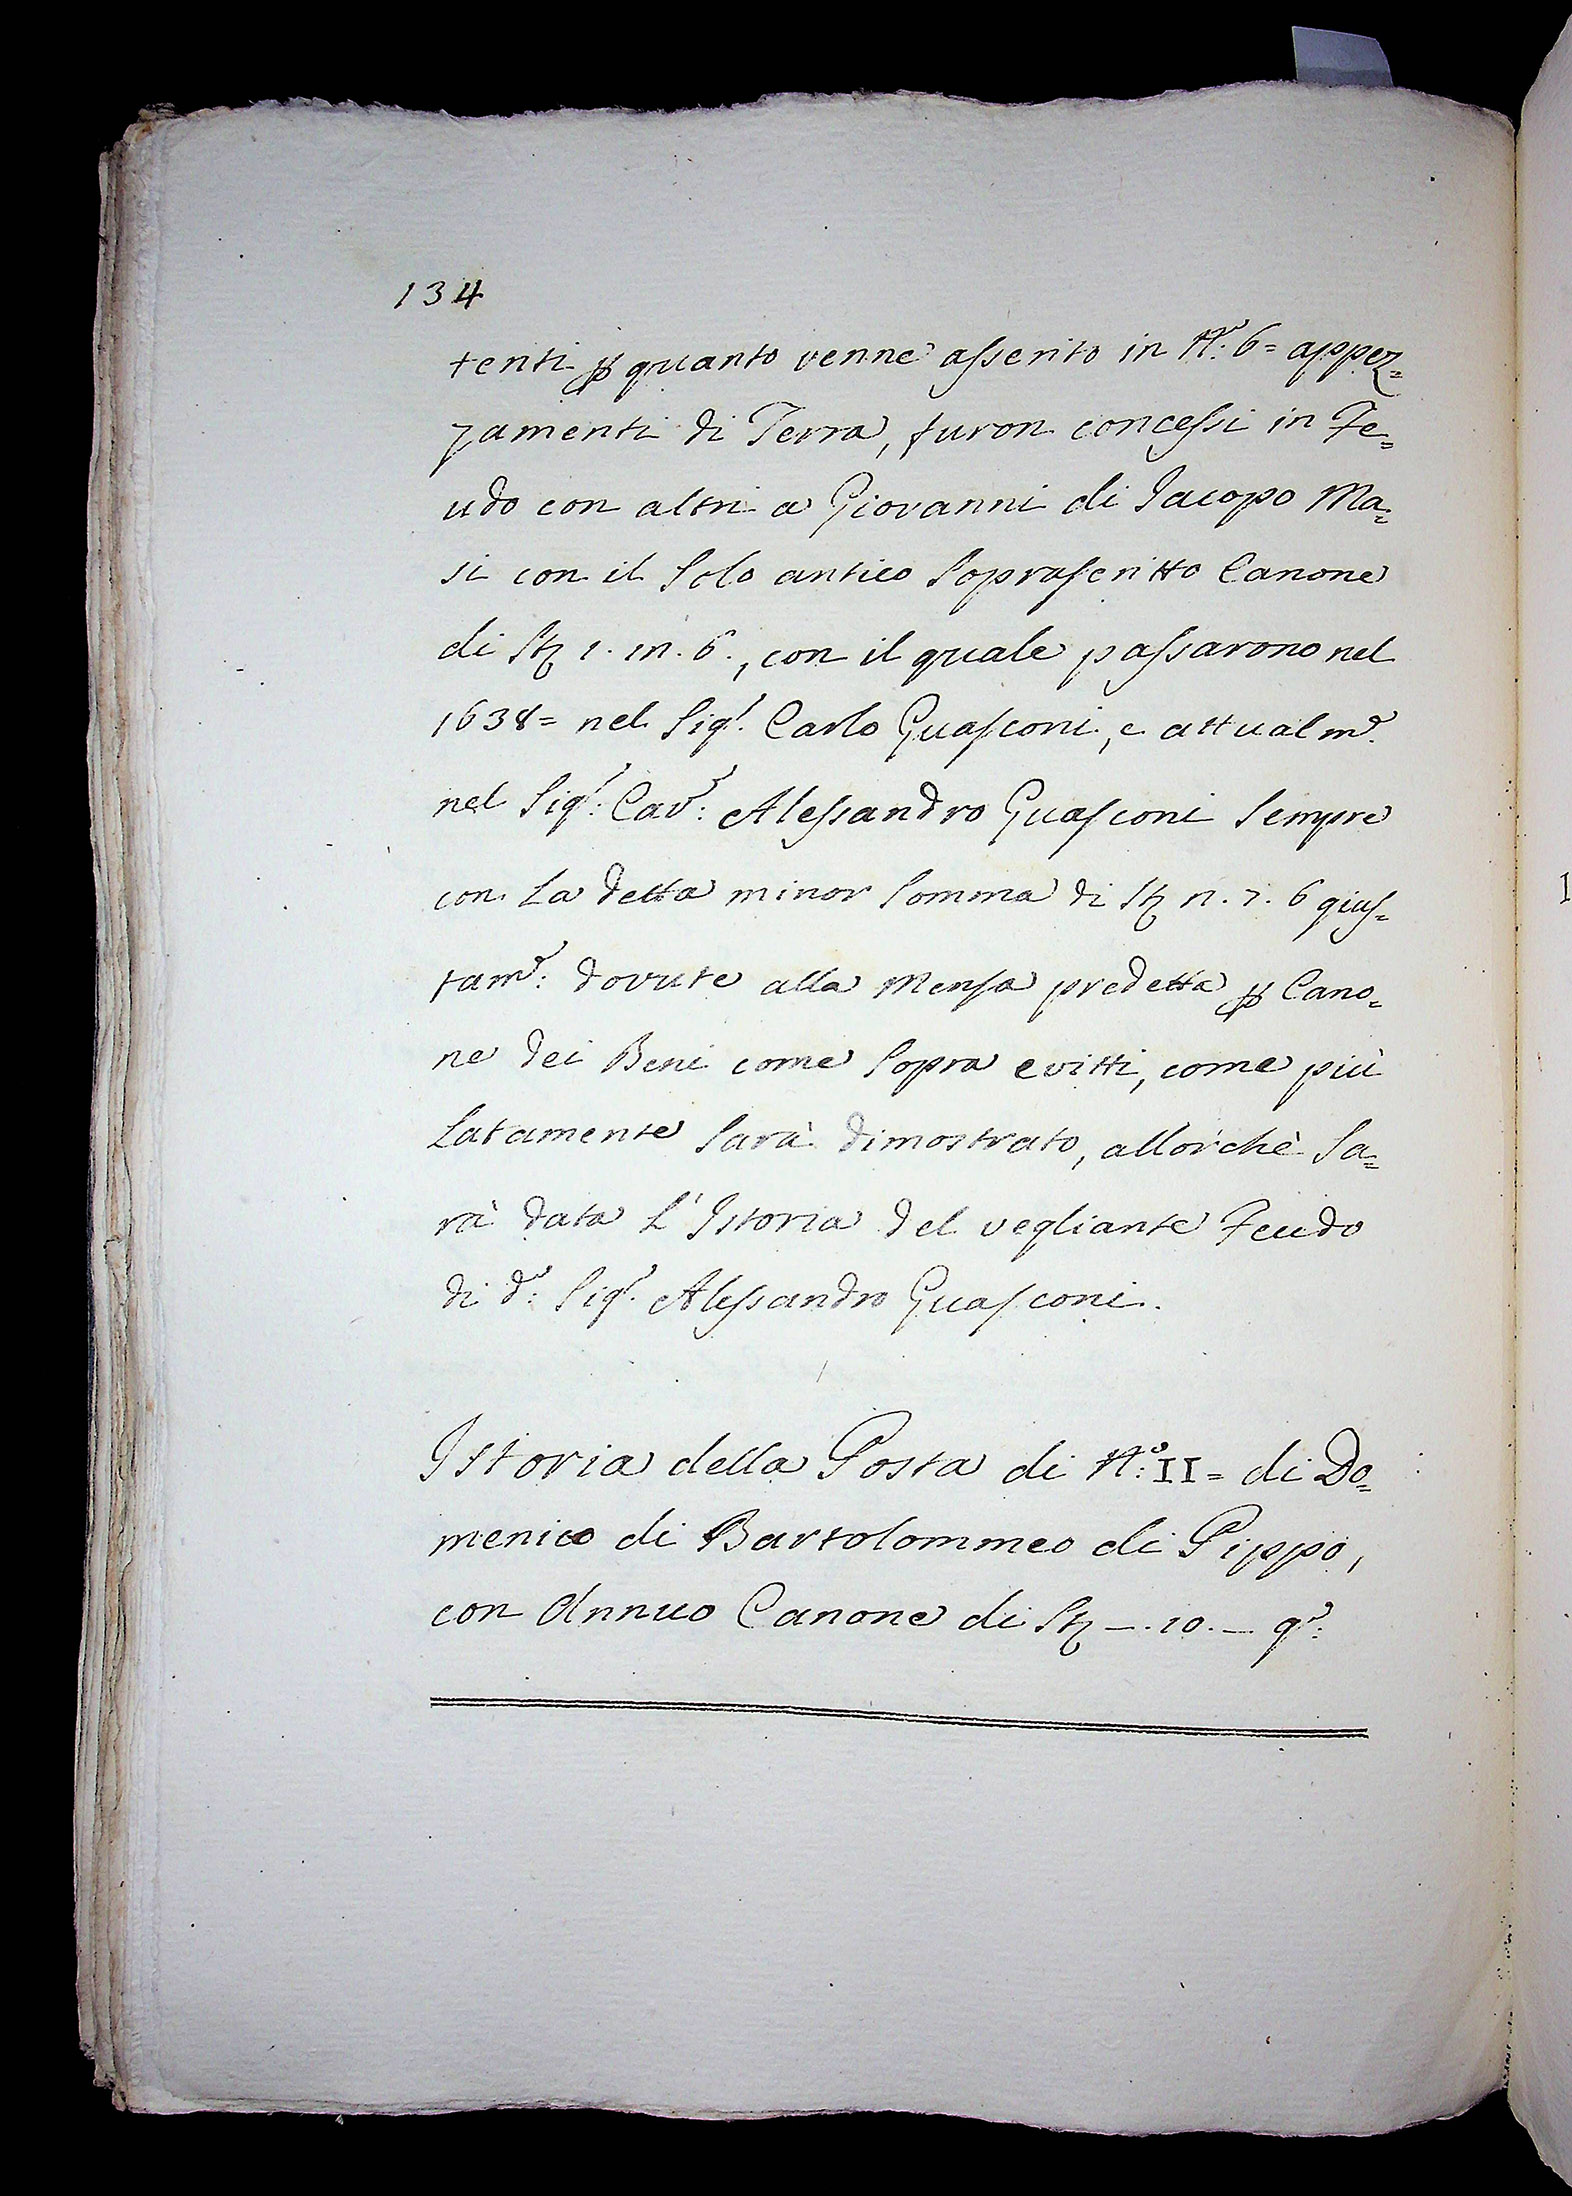 134
tenti p quanto venne asserito in N.º 6= appez=
zamenti di Terra, furon concessi in Fe=
udo con altri a Giovanni di Jacopo Ma=
si con il Solo antico Soprascritto Canone
di St 1. m. 6., con il quale passarono nel
1638= nel Sigr. Carlo Guasconi, e attualme.
nel Sigr: Cave: Alessandro Guasconi Sempre
con La detta minor Somma di St n. 7. 6 gius=
tame: dovute alla Mensa predetta p Cano=
ne dei Beni come Sopra evitti, come più
Latamente Sarà dimostrato, allorchè Sa=
rà data L'Istoria del vegliante Feudo
di do: Sigr. Alessandro Guasconi.
Istoria della Posta di N.º: II= di Do=
menico di Bartolommeo di Pippo,
con Annuo Canone di St —. 10. — go: